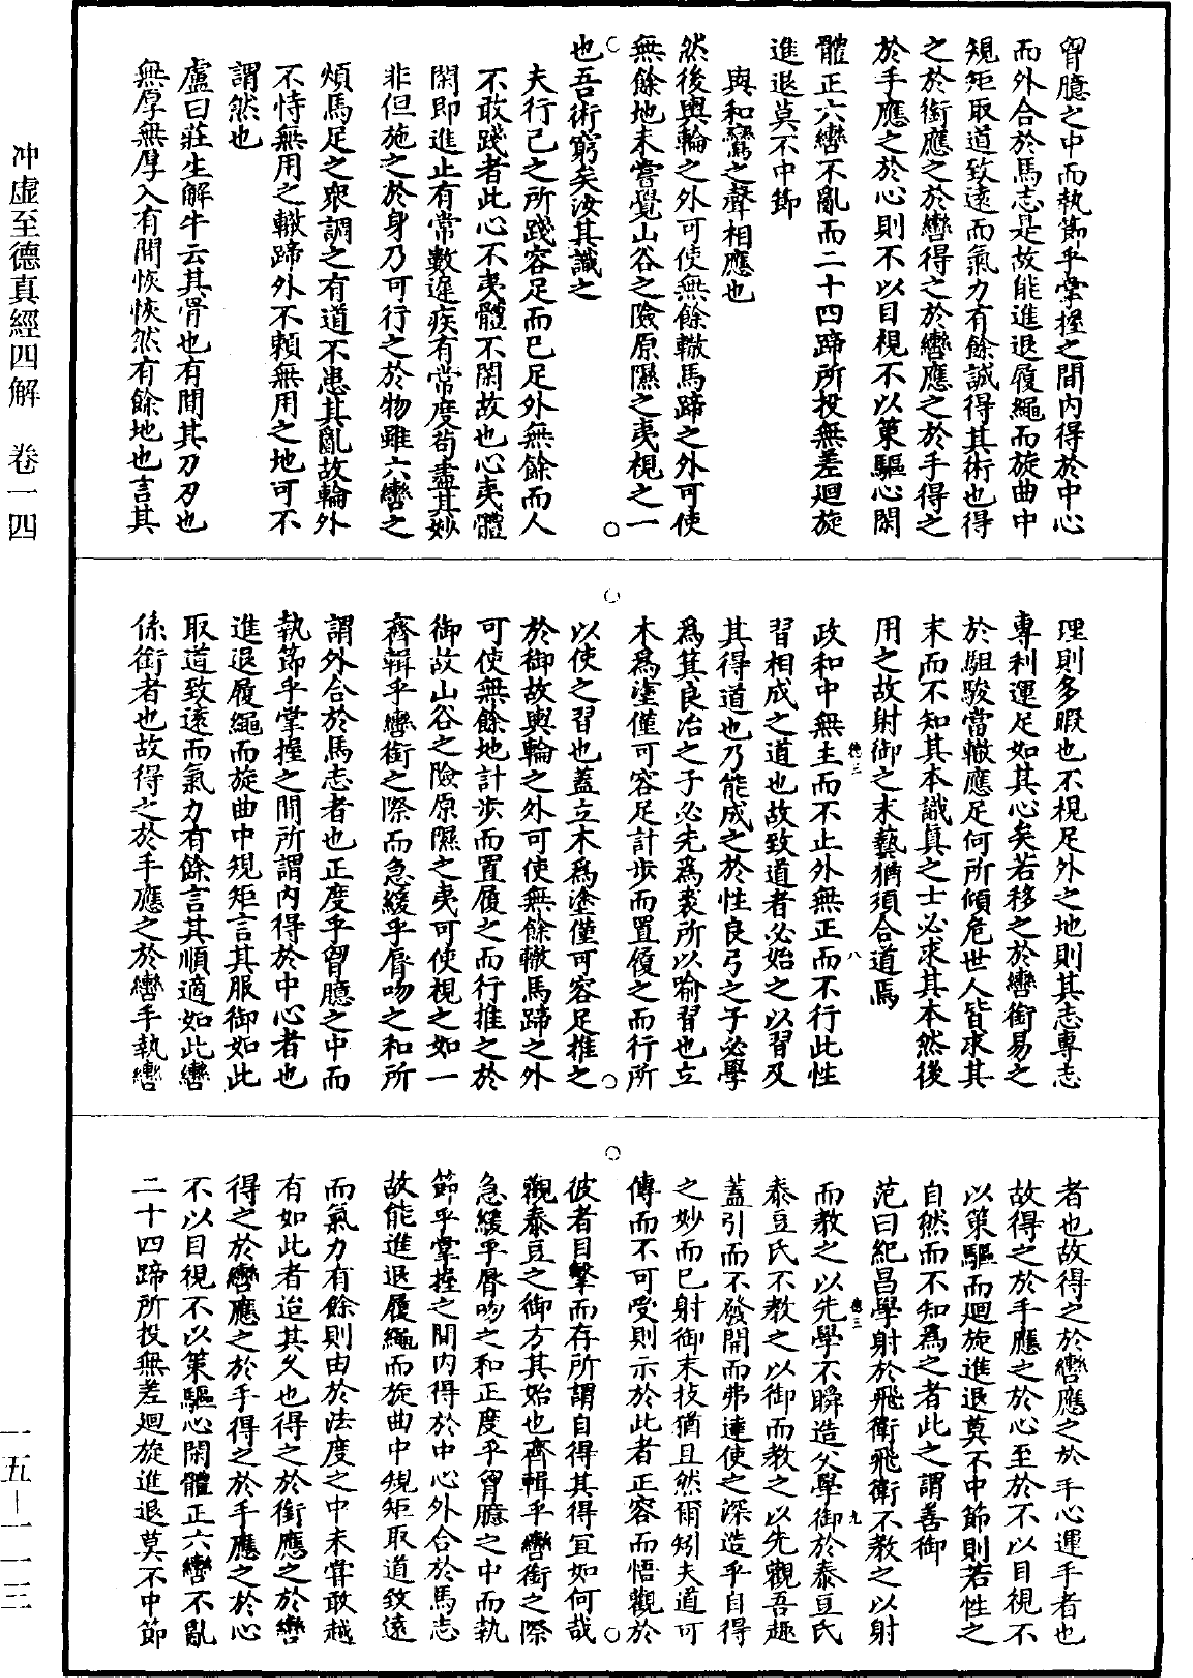 胷臆之中而執節乎掌握之間內得於中心
而外合於馬志是故能進退履繩而旋曲中
規矩取道致遠而氣力有餘誠得其術也得
之於銜應之於轡得之於轡應之於手得之
於手應之於心則不以目視不以策驅心閑
體正六轡不亂而二十四蹄所投無差迴旋
進退莫不中節
與和鸞之聲相應也
然後輿輪之外可使無餘轍馬蹄之外可使
無餘地未嘗覺山谷之險原隰之夷視之一
也吾術窮矣汝其識之
夫行己之所踐容足而已足外無餘而人
不敢踐者此心不夷體不閑故也心夷體
閑即進止有常數遲疾有常度苟盡其妙
非但施之於身乃可行之於物雖六轡之
煩馬足之衆調之有道不患其亂故輪外
不恃無用之轍蹄外不賴無用之地可不
謂然也
盧曰莊生解牛云其骨也有間其刀刃也
無厚無厚入有間恢恢然有餘地也言其
理則多暇也不視足外之地則其志專志
專利運足如其心矣若移之於轡銜易之
於駔駿當轍應足何所傾危世人皆求其
末而不知其本識真之士必求其本然後
用之故射御之末藝猶須合道焉
政和中無主而不止外無正而不行此性
習相成之道也故致道者必始之以習及
其得道也乃能成之於性良弓之子必學
爲箕良冶之子必先爲裘所以喻習也立
木爲塗僅可容足計步而置履之而行所
以使之習也蓋立木爲塗僅可容足推之
於御故輿輪之外可使無餘轍馬蹄之外
可使無餘地計步而置履之而行推之於
御故山谷之險原隰之夷可使視之如一
齊輯乎轡銜之際而急緩乎脣吻之和所
謂外合於馬志者也正度乎胷臆之中而
執節乎掌握之間所謂內得於中心者也
進退履繩而旋曲中規矩言其服御如此
取道致遠而氣力有餘言其順適如此轡
係銜者也故得之於手應之於轡手執轡
者也故得之於轡應之於手心運手者也
故得之於手應之於心至於不以目視不
以策驅而迴旋進退莫不中節則若性之
自然而不知為之者此之謂善御
范曰紀昌學射於飛衛飛衛不教之以射
而教之以先學不瞬造父學御於泰豆氏
泰豆氏不教之以御而教之以先觀吾趣
蓋引而不發開而弗達使之深造乎自得
之妙而已射御末技猶且然爾矧夫道可
傳而不可受則示於此者正容而悟觀於
彼者目擊而存所謂自得其得宜如何哉
觀泰豆之御方其始也齊輯乎轡銜之際
急緩乎脣吻之和正度乎胷臆之中而執
節乎掌握之間內得於中心外合於馬志
故能進退履繩而旋曲中規矩取道致遠
而氣力有餘則由於法度之中未甞敢越
有如此者迨其久也得之於銜應之於轡
得之於轡應之於手得之於手應之於心
不以目視不以策驅心閑體正六轡不亂
二十四蹄所投無差迴旋進退莫不中節
德三
八
德三
九
冲虛至德真經四解　卷一四
一五－一一三